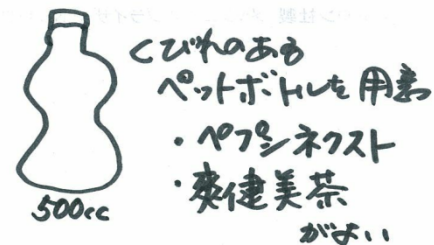 くびれのある
ペットボトルを用意
・ペプシネクスト
・爽健美茶
がよい
500cc